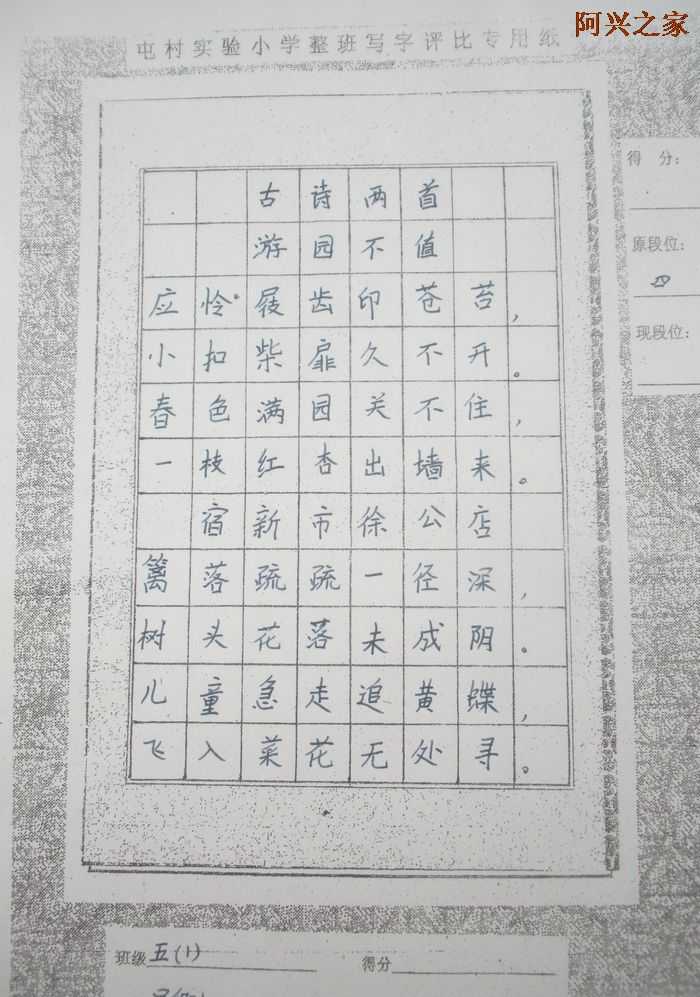 阿兴之家
屯村实验小学整班写字评比专用纸
古诗两首
游园不值
应怜屐齿印苍苔，
小扣柴扉久不开。
春色满园关不住，
一枝红杏出墙来。
宿新市徐公店
篱落疏疏一径深，
树头花落未成阴。
儿童急走追黄蝶，
飞入菜花无处寻。
得 分：
原段位：
四
现段位：
班级 五(1)
得分